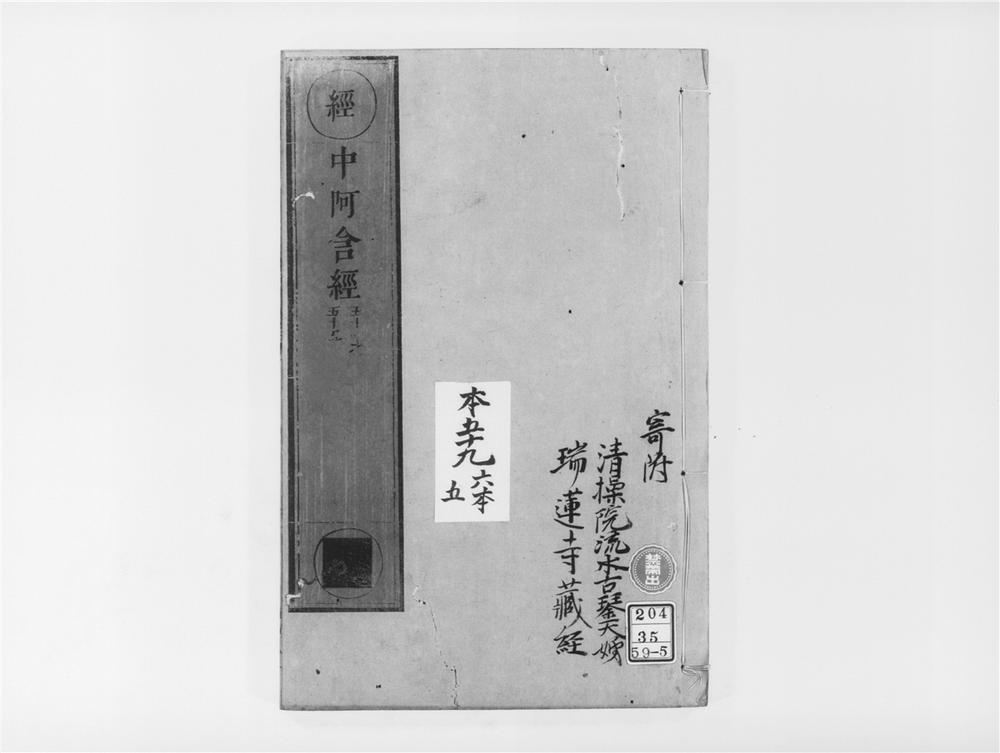 寄附
清操院流水古琴大姉
瑞蓮寺藏経
禁帯出
204
35
59-5
本五十九
六本
五
經
中阿含經
五十六